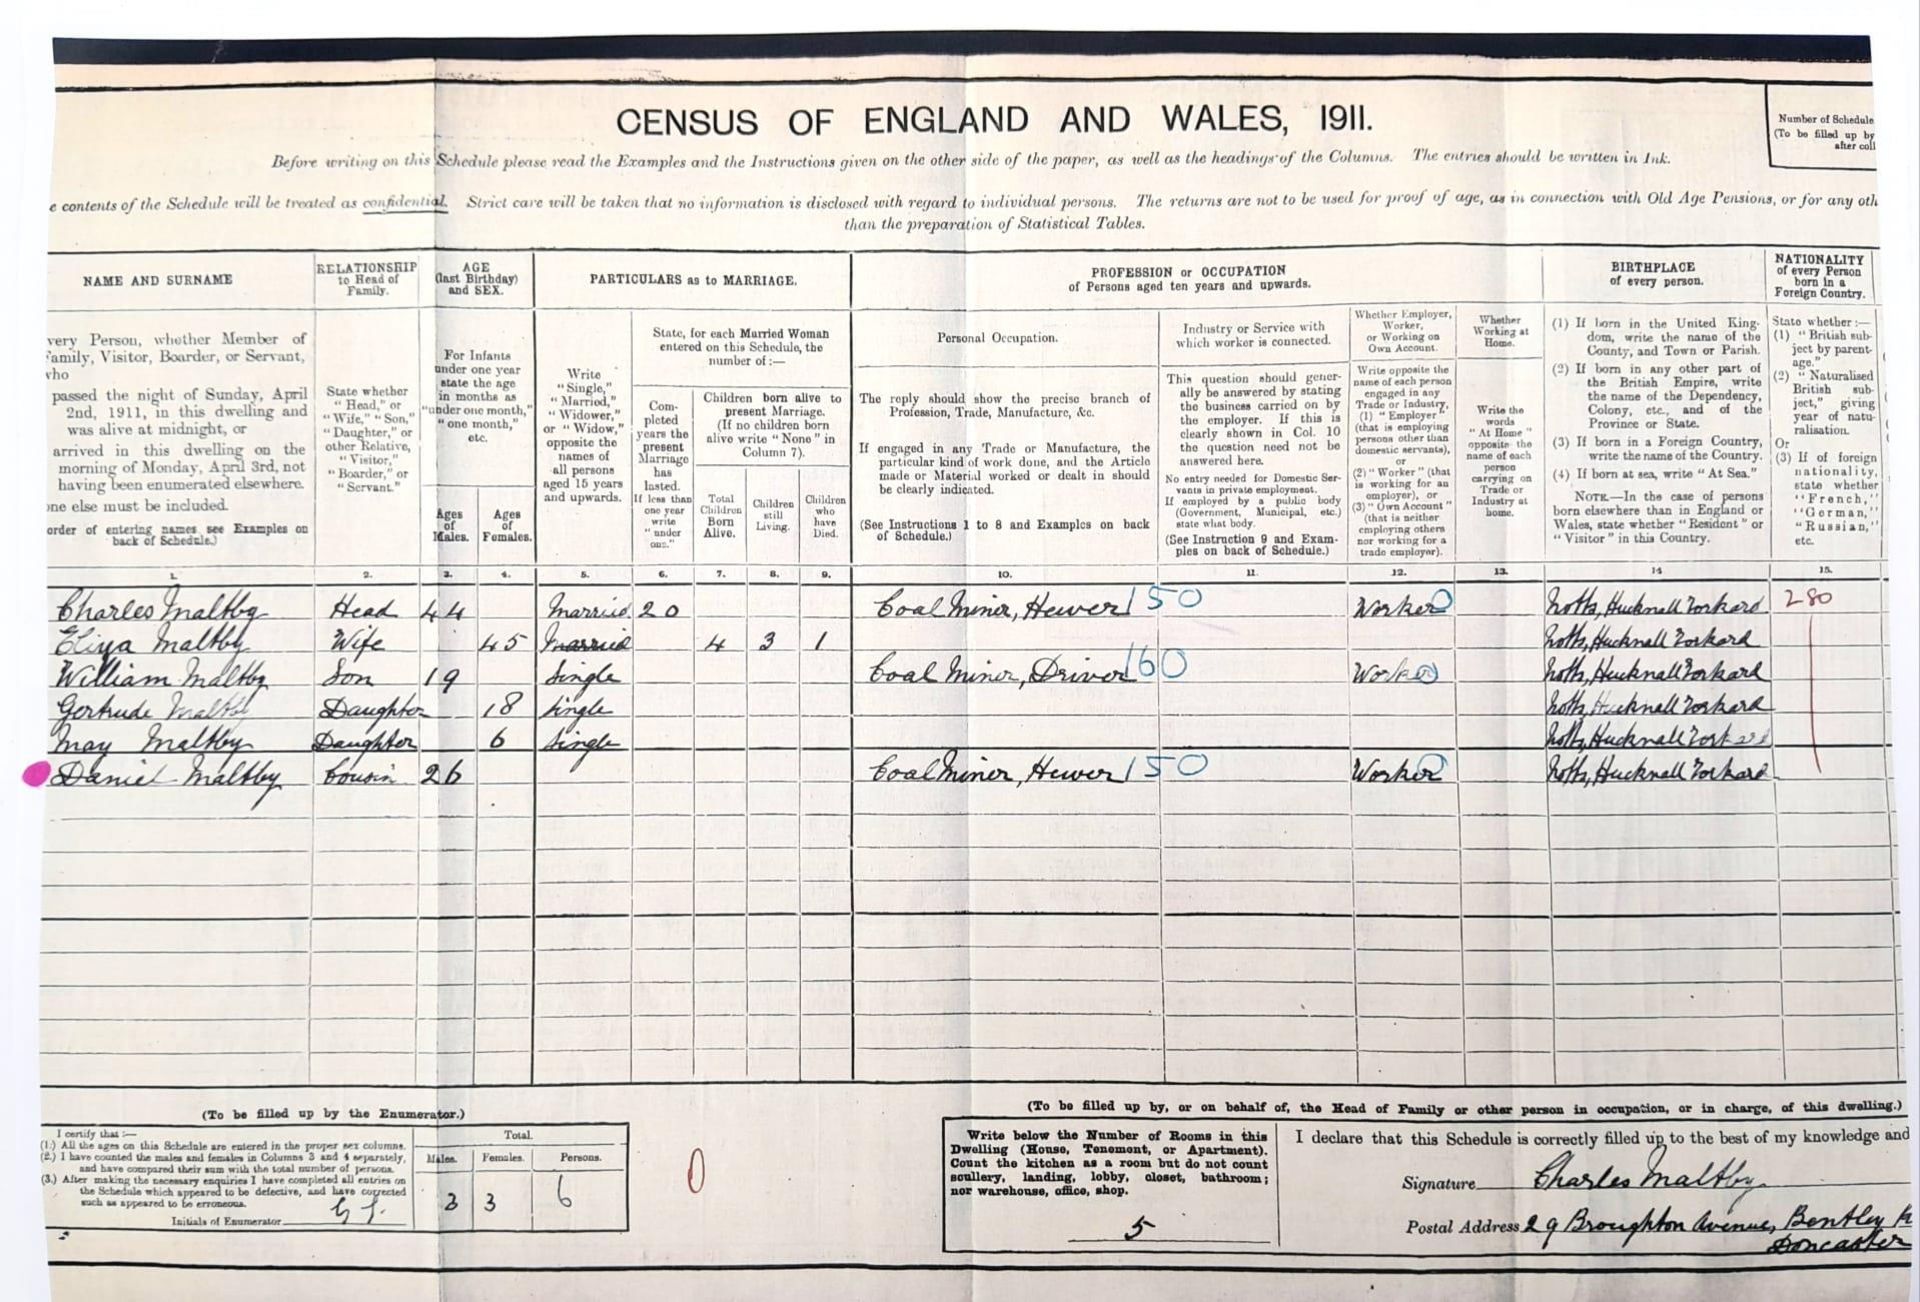 CENSUS OF ENGLAND AND WALES, 1911.
Number of Schedule
(To be filled up by
after coll
Before writing on this Schedule please read the Examples and the Instructions given on the other side of the paper, as well as the headings of the Columns. The entries should be written in Ink.
e contents of the Schedule will be treated as confidential. Strict care will be taken that no information is disclosed with regard to individual persons. The returns are not to be used for proof of age, as in connection with Old Age Pensions, or for any oth
than the preparation of Statistical Tables.
NAME AND SURNAME
very Person, whether Member of
Family, Visitor, Boarder, or Servant,
who
passed the night of Sunday, April
2nd, 1911, in this dwelling and
was alive at midnight, or
arrived in this dwelling on the
morning of Monday, April 3rd, not
having been enumerated elsewhere.
one else must be included.
order of entering names see Examples on
back of Schedule.)
RELATIONSHIP
to Head of
Family.
State whether
"Head," or
"Wife," "Son,"
"Daughter," or
other Relative,
"Visitor,"
"Boarder," or
"Servant."
AGE
(last Birthday)
and SEX.
For Infants
under one year
state the age
in months as
"under one month,"
"one month,"
etc.
Ages
of
Males.
Ages
of
Females.
PARTICULARS as to MARRIAGE.
Write
"Single,"
"Married,"
"Widower,"
or "Widow,"
opposite the
names of
all persons
aged 15 years
and upwards.
State, for each Married Woman
entered on this Schedule, the
number of:—
Com-
pleted
years the
present
Marriage
has
lasted.
If less than
one year
write
"under
one."
Children born alive to
present Marriage.
(If no children born
alive write "None" in
Column 7).
Total
Children
Born
Alive.
Children
still
Living.
Children
who
have
Died.
PROFESSION or OCCUPATION
of Persons aged ten years and upwards.
Personal Occupation.
The reply should show the precise branch of
Profession, Trade, Manufacture, &c.
If engaged in any Trade or Manufacture, the
particular kind of work done, and the Article
made or Material worked or dealt in should
be clearly indicated.
(See Instructions 1 to 8 and Examples on back
of Schedule.)
Industry or Service with
which worker is connected.
This question should gener-
ally be answered by stating
the business carried on by
the employer. If this is
clearly shown in Col. 10
the question need not be
answered here.
No entry needed for Domestic Ser-
vants in private employment.
If employed by a public body
(Government, Municipal, etc.)
state what body.
(See Instruction 9 and Exam-
ples on back of Schedule.)
Whether Employer,
Worker,
or Working on
Own Account.
Write opposite the
name of each person
engaged in any
Trade or Industry,
(1) "Employer"
(that is employing
persons other than
domestic servants),
or
(2) "Worker" (that
is working for an
employer), or
(3) "Own Account"
(that is neither
employing others
nor working for a
trade employer).
Whether
Working at
Home.
Write the
words
"At Home"
opposite the
name of each
person
carrying on
Trade or
Industry at
home.
BIRTHPLACE
of every person.
(1) If born in the United King-
dom, write the name of the
County, and Town or Parish.
(2) If born in any other part of
the British Empire, write
the name of the Dependency,
Colony, etc., and of the
Province or State.
(3) If born in a Foreign Country,
write the name of the Country.
(4) If born at sea, write "At Sea."
NOTE.—In the case of persons
born elsewhere than in England or
Wales, state whether "Resident" or
"Visitor" in this Country.
NATIONALITY
of every Person
born in a
Foreign Country.
State whether:—
(1) "British sub-
ject by parent-
age."
(2) "Naturalised
British sub-
ject," giving
year of natu-
ralisation.
Or
(3) If of foreign
nationality,
state whether
"French,"
"German,"
"Russian,"
etc.
1. 2. 3. 4. 5. 6. 7. 8. 9. 10. 11. 12. 13. 14 15.
Charles Maltby Head 44 Married 20 Coal Miner, Hewer 150 Worker Notts, Hucknall Torkard 280
Eliza Maltby Wife 45 Married 4 3 1 Notts, Hucknall Torkard
William Maltby Son 19 Single Coal Miner, Driver 160 Worker Notts, Hucknall Torkard
Gertrude Maltby Daughter 18 Single Notts, Hucknall Torkard
May Maltby Daughter 6 Single Notts, Hucknall Torkard
Daniel Maltby Cousin 26 Coal Miner, Hewer 150 Worker Notts, Hucknall Torkard
(To be filled up by the Enumerator.)
I certify that:—
(1.) All the ages on this Schedule are entered in the proper sex columns.
(2.) I have counted the males and females in Columns 3 and 4 separately,
and have compared their sum with the total number of persons.
(3.) After making the necessary enquiries I have completed all entries on
the Schedule which appeared to be defective, and have corrected
such as appeared to be erroneous.
Initials of Enumerator
Total.
Males. Females. Persons.
3 3 6
0
(To be filled up by, or on behalf of, the Head of Family or other person in occupation, or in charge, of this dwelling.)
Write below the Number of Rooms in this
Dwelling (House, Tenement, or Apartment).
Count the kitchen as a room but do not count
scullery, landing, lobby, closet, bathroom;
nor warehouse, office, shop.
5
I declare that this Schedule is correctly filled up to the best of my knowledge and
Signature Charles Maltby
Postal Address 29 Broughton Avenue, Bentley
Doncaster